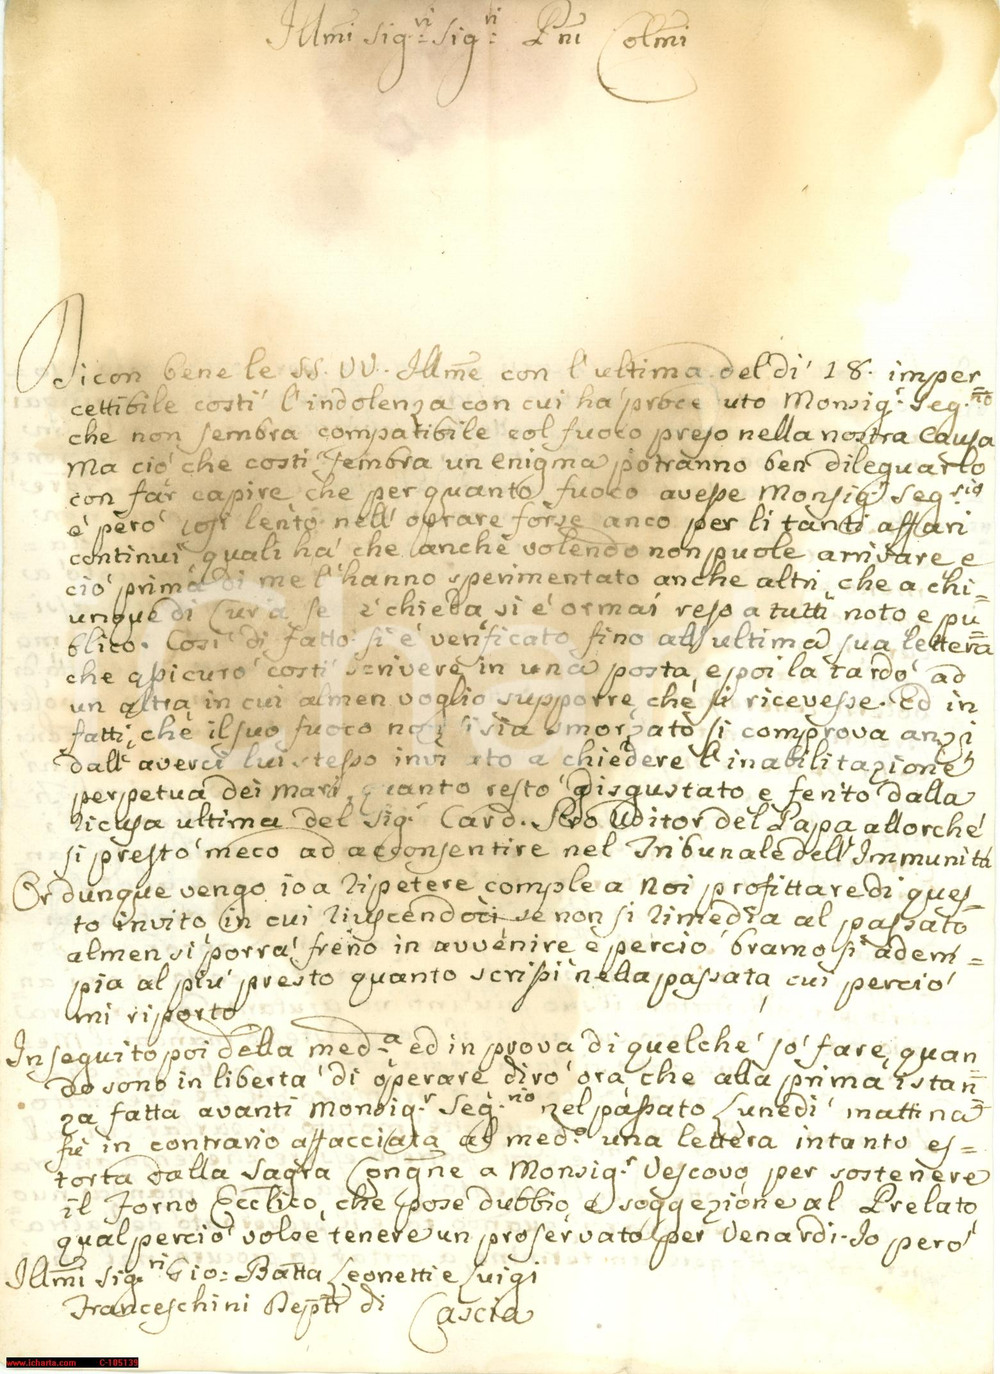 Illmi Sigri Sigri Pni Colmi
Dicon bene le SS. VV. Illme con l'ultima del di 18. imper
cettibile costi l'indolenza con cui ha proce uto Monsigr Segrio
che non sembra compatibile col fuoco preso nella nostra causa
Ma ciò che costi sembra un enigma potranno ben dileguarlo
con far capire che per quanto fuoco avesse Monsigr Segrio
è però così lento nell'oprare forse anco per li tanti affari
continui quali hà che anche volendo non puole arrivare e
ciò prima di me l'hanno sperimentato anche altri, che a chi=
unque di Curia se richieda si è ormai reso a tutti noto e pu=
blico. Così di fatto si è verificato fino all'ultima sua lettera
che assicurò costi scrivere in una posta, e poi la tardò ad
un altra in cui almen voglio supporre che si ricevesse. Ed in
fatti, che il suo fuoco non si sia smorzato si comprova anzi
dall'averci lui stesso invi ato a chiedere l'inabilitazione
perpetua dei quanto restò disgustato e ferito dalla
ricusa ultima del Sigr Card. Pro Uditor del Papa allorche
si prestò meco ad acconsentire nel Tribunale dell'Immunità
Or dunque vengo io a ripetere comple a Noi profittare di ques=
to invito in cui riuscendoci se non si rimedia al passato
almen si porrà freno in avvenire e perciò bramo si adem=
pia al più presto quanto scrissi nella passata, cui perciò
mi riporto
In seguito poi della meda ed in prova di quelche sò fare, quan=
do sono in libertà di operare dirò ora che alla prima istan=
za fatta avanti Monsigr Segrio nel passato Lunedì mattina
fù in contrario affacciata al medo una lettera intanto es=
torta dalla Sagra Congne a Monsigr Vescovo per sostenere
il Forno Ecclico, che pose dubbio, e soggezione al Prelato
qual perciò volse tenere un proservato per Venardi. Io però
Illmi Sigri Gio: Batta Leonetti e Luigi
Franceschini Depti di Cascia
www.icharta.com C-105139